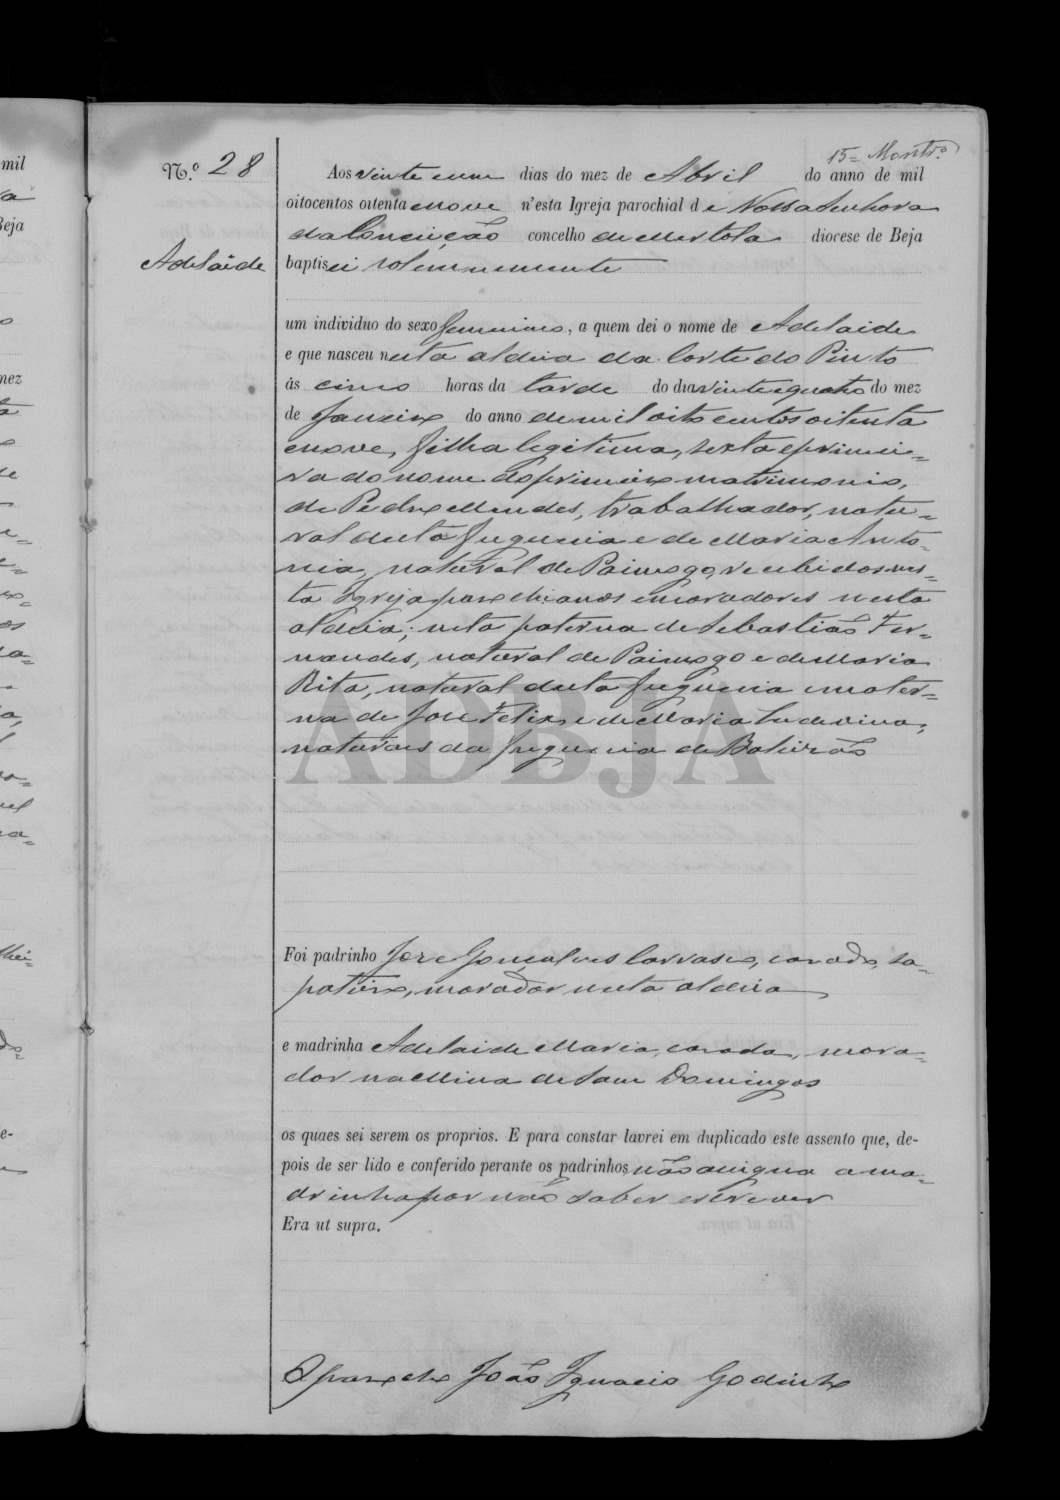 15= Montr.º
N.º 28
Aos vinte e um dias do mez de Abril do anno de mil
oitocentos oitenta e nove n'esta Igreja parochial de Nossa Senhora
da Conceição concelho de Mertola diocese de Beja
Adelaide
baptisei solemnemente
um individuo do sexo femenino, a quem dei o nome de Adelaide
e que nasceu nesta aldeia da Corte do Pinto
ás cinco horas da tarde do dia vinte e quatro do mez
de Janeiro do anno de mil oito centos oitenta
e nove, filha legitima, sexta e primei=
ra do nome do primeiro matrimonio,
de Pedro Mendes, trabalhador, natu=
ral desta freguesia e de Maria Anto=
nia, natural de Paimogo, recebidos nes=
ta Igreja parochianos e moradores nesta
aldeia; neta paterna de Sebastião Fer=
nandes, natural de Paimogo e de Maria
Rita, natural desta freguesia e mater=
na de José Felix e de Maria Ludovina,
naturaes da freguesia de
ADBJA
Foi padrinho José Gonçalves Carrasco, casado, sa=
pateiro, morador nesta aldeia
e madrinha Adelaide Maria, casada, mora=
dor na Mina de Sam Domingos
os quaes sei serem os proprios. E para constar lavrei em duplicado este assento que, de-
pois de ser lido e conferido perante os padrinhos, não assigna a ma=
drinha por não saber escrever
Era ut supra.
O parocho João Ignacio Godinho